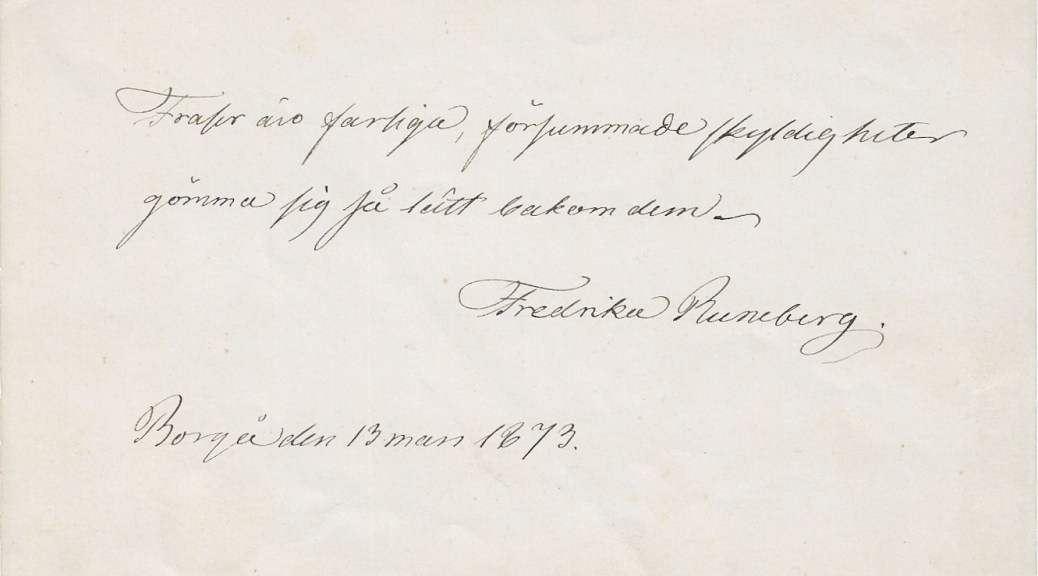 Fraser äro farliga, försummade skyldigheter
gömma sig så lätt bakom dem_
Fredrika Runeberg.
Borgå den 13 mars 1873.